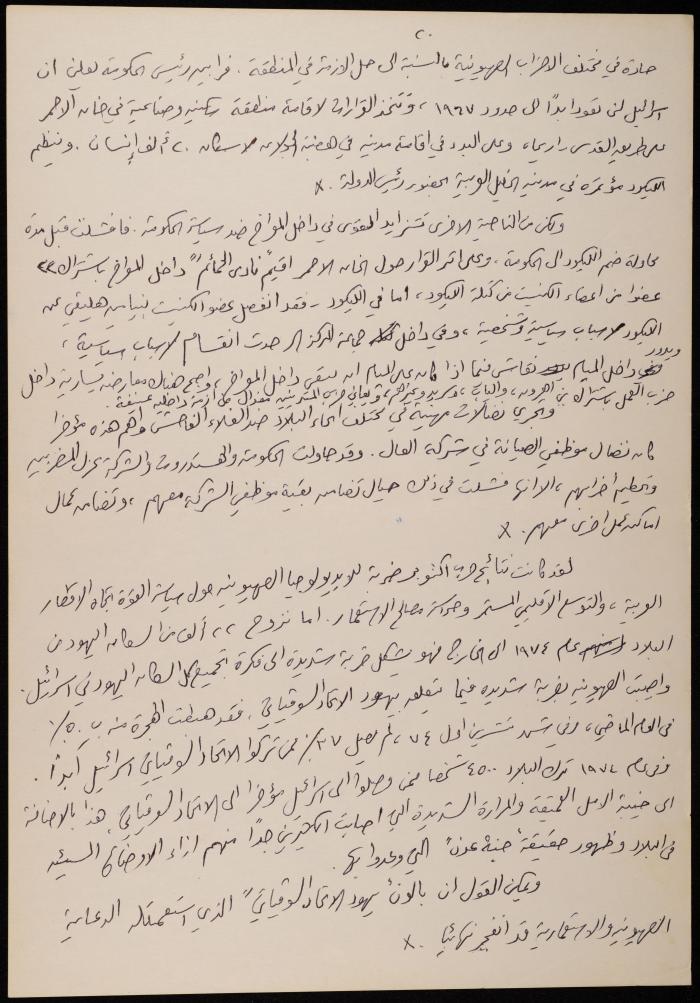 ٢٠
حادة في مختلف الاحزاب الصهيونية بالنسبة الى حل الازمة في المنطقة . فرابين رئيس الحكومة يعلن ان
اسرائيل لن تعود ابدًا الى حدود ١٩٦٧ ، وتتخذ القرارات لاقامة منطقة سكنية وصناعية في خان الاحمر
على طريق القدس - اريحا ، وعلى البدء في اقامة مدينة في هضبة الجولان لاسكان ٢٠ ألف إنسان . وينظم
الليكود مؤتمره في مدينة الخليل العربية بحضور رئيس الدولة . X
ولكن من الناحية الاخرى تتزايد القوى في داخل المعراخ ضد سياسة الحكومة . فافشلت قبل مدة
محاولة ضم الليكود الى الحكومة ، وعلى اثر القرار حول الخان الاحمر اقيم "نادي الحمائم" داخل المعراخ باشتراك ٢٣
عضوا من اعضاء الكنيست من كتلة الليكود ، اما في الليكود - فقد انفصل عضو الكنيست بنيامين هليفي عن
الليكود لاسباب سياسية وشخصية ، وفي داخل جماعة المركز الحر حدث انقسام لاسباب سياسية ،
ويدور
داخل المبام نقاش فيما اذا كان على المبام ان يبقى داخل المعراخ ، واصبح هناك معارضة يسارية داخل
حزب العمل باشتراك بن اهرون ، والياب ، وسريد وغيرهم ، ويعاني حزب المتدينين مفدال من ازمة داخلية عميقة .
وتجري نضالات مهنية في مختلف انحاء البلاد ضد الغلاء الفاحش واهم هذه مؤخرا
كان نضال موظفي الصيانة في شركة العال . وقد حاولت الحكومة والهستدروت والشركة عزل المضربين
وتحطيم اضرابهم ، الا انها فشلت في ذلك حيال تضامن بقية موظفي الشركة معهم ، وتضامن عمال
اماكن عمل اخرى معهم . X
لقد كانت نتائج حرب اكتوبر ضربة للايديولوجيا الصهيونية حول سياسة القوة تجاه الاقطار
العربية ، والتوسع الاقليمي المستمر وخدمة مصالح الاستعمار . اما نزوح ٢٢ ألف من السكان اليهود من
البلاد عام ١٩٧٤ الى الخارج فهو يشكل ضربة شديدة الى فكرة تجميع كل السكان اليهود في اسرائيل .
واصيبت الصهيونية بضربة شديدة فيما يتعلق بيهود الاتحاد السوفياتي . فقد هبطت الهجرة منه ب ٥٠٪
في العام الماضي ، وفي شهر تشرين اول ٧٤ ، لم يصل ٣٧٪ ممن تركوا الاتحاد السوفياتي اسرائيل أبدًا .
وفي عام ١٩٧٤ ترك البلاد ٤٥٠٠ شخصا ممن وصلوا الى اسرائيل مؤخرا الى الاتحاد السوفياتي ، هذا بالاضافة
الى خيبة الامل العميقة والمرارة الشديدة التي اصابت الكثيرين جدًا منهم ازاء الاوضاع السيئة
في البلاد وظهور حقيقة "جنة عدن" التي وعدوا بها .
ويمكن القول ان بالون "يهود الاتحاد السوفياتي" الذي استعملته الدعاية
الصهيونية والاستعمارية قد انفجر نهائيا . X